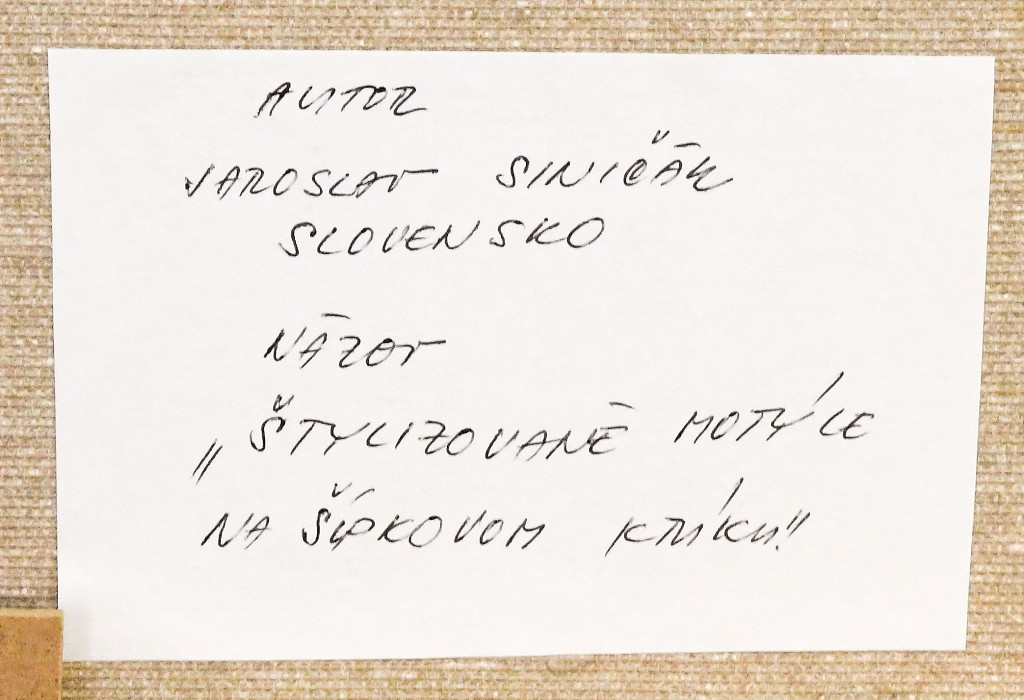 AUTOR
JAROSLAV SINIČÁK
SLOVENSKO
NÁZOV
„ŠTYLIZOVANÉ MOTÝLE
NA ŠÍPKOVOM KRÍKU"